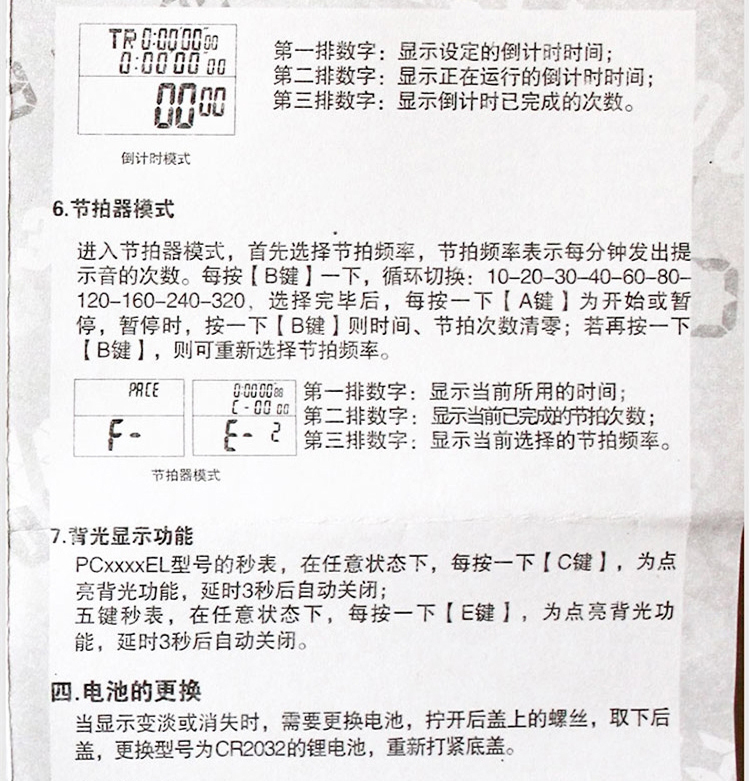 TR 0:00'00"00
0:00'00 00
00 00
第一排数字：显示设定的倒计时时间；
第二排数字：显示正在运行的倒计时时间；
第三排数字：显示倒计时已完成的次数。
倒计时模式
6.节拍器模式
进入节拍器模式，首先选择节拍频率，节拍频率表示每分钟发出提
示音的次数。每按【B键】一下，循环切换：10-20-30-40-60-80-
120-160-240-320，选择完毕后，每按一下【A键】为开始或暂
停，暂停时，按一下【B键】则时间、节拍次数清零；若再按一下
【B键】，则可重新选择节拍频率。
PACE
F-
C-00 00
E- 2
第一排数字：显示当前所用的时间；
第二排数字：显示当前已完成的节拍次数；
第三排数字：显示当前选择的节拍频率。
节拍器模式
7.背光显示功能
PCxxxxEL型号的秒表，在任意状态下，每按一下【C键】，为点
亮背光功能，延时3秒后自动关闭；
五键秒表，在任意状态下，每按一下【E键】，为点亮背光功
能，延时3秒后自动关闭。
四.电池的更换
当显示变淡或消失时，需要更换电池，拧开后盖上的螺丝，取下后
盖，更换型号为CR2032的锂电池，重新打紧底盖。